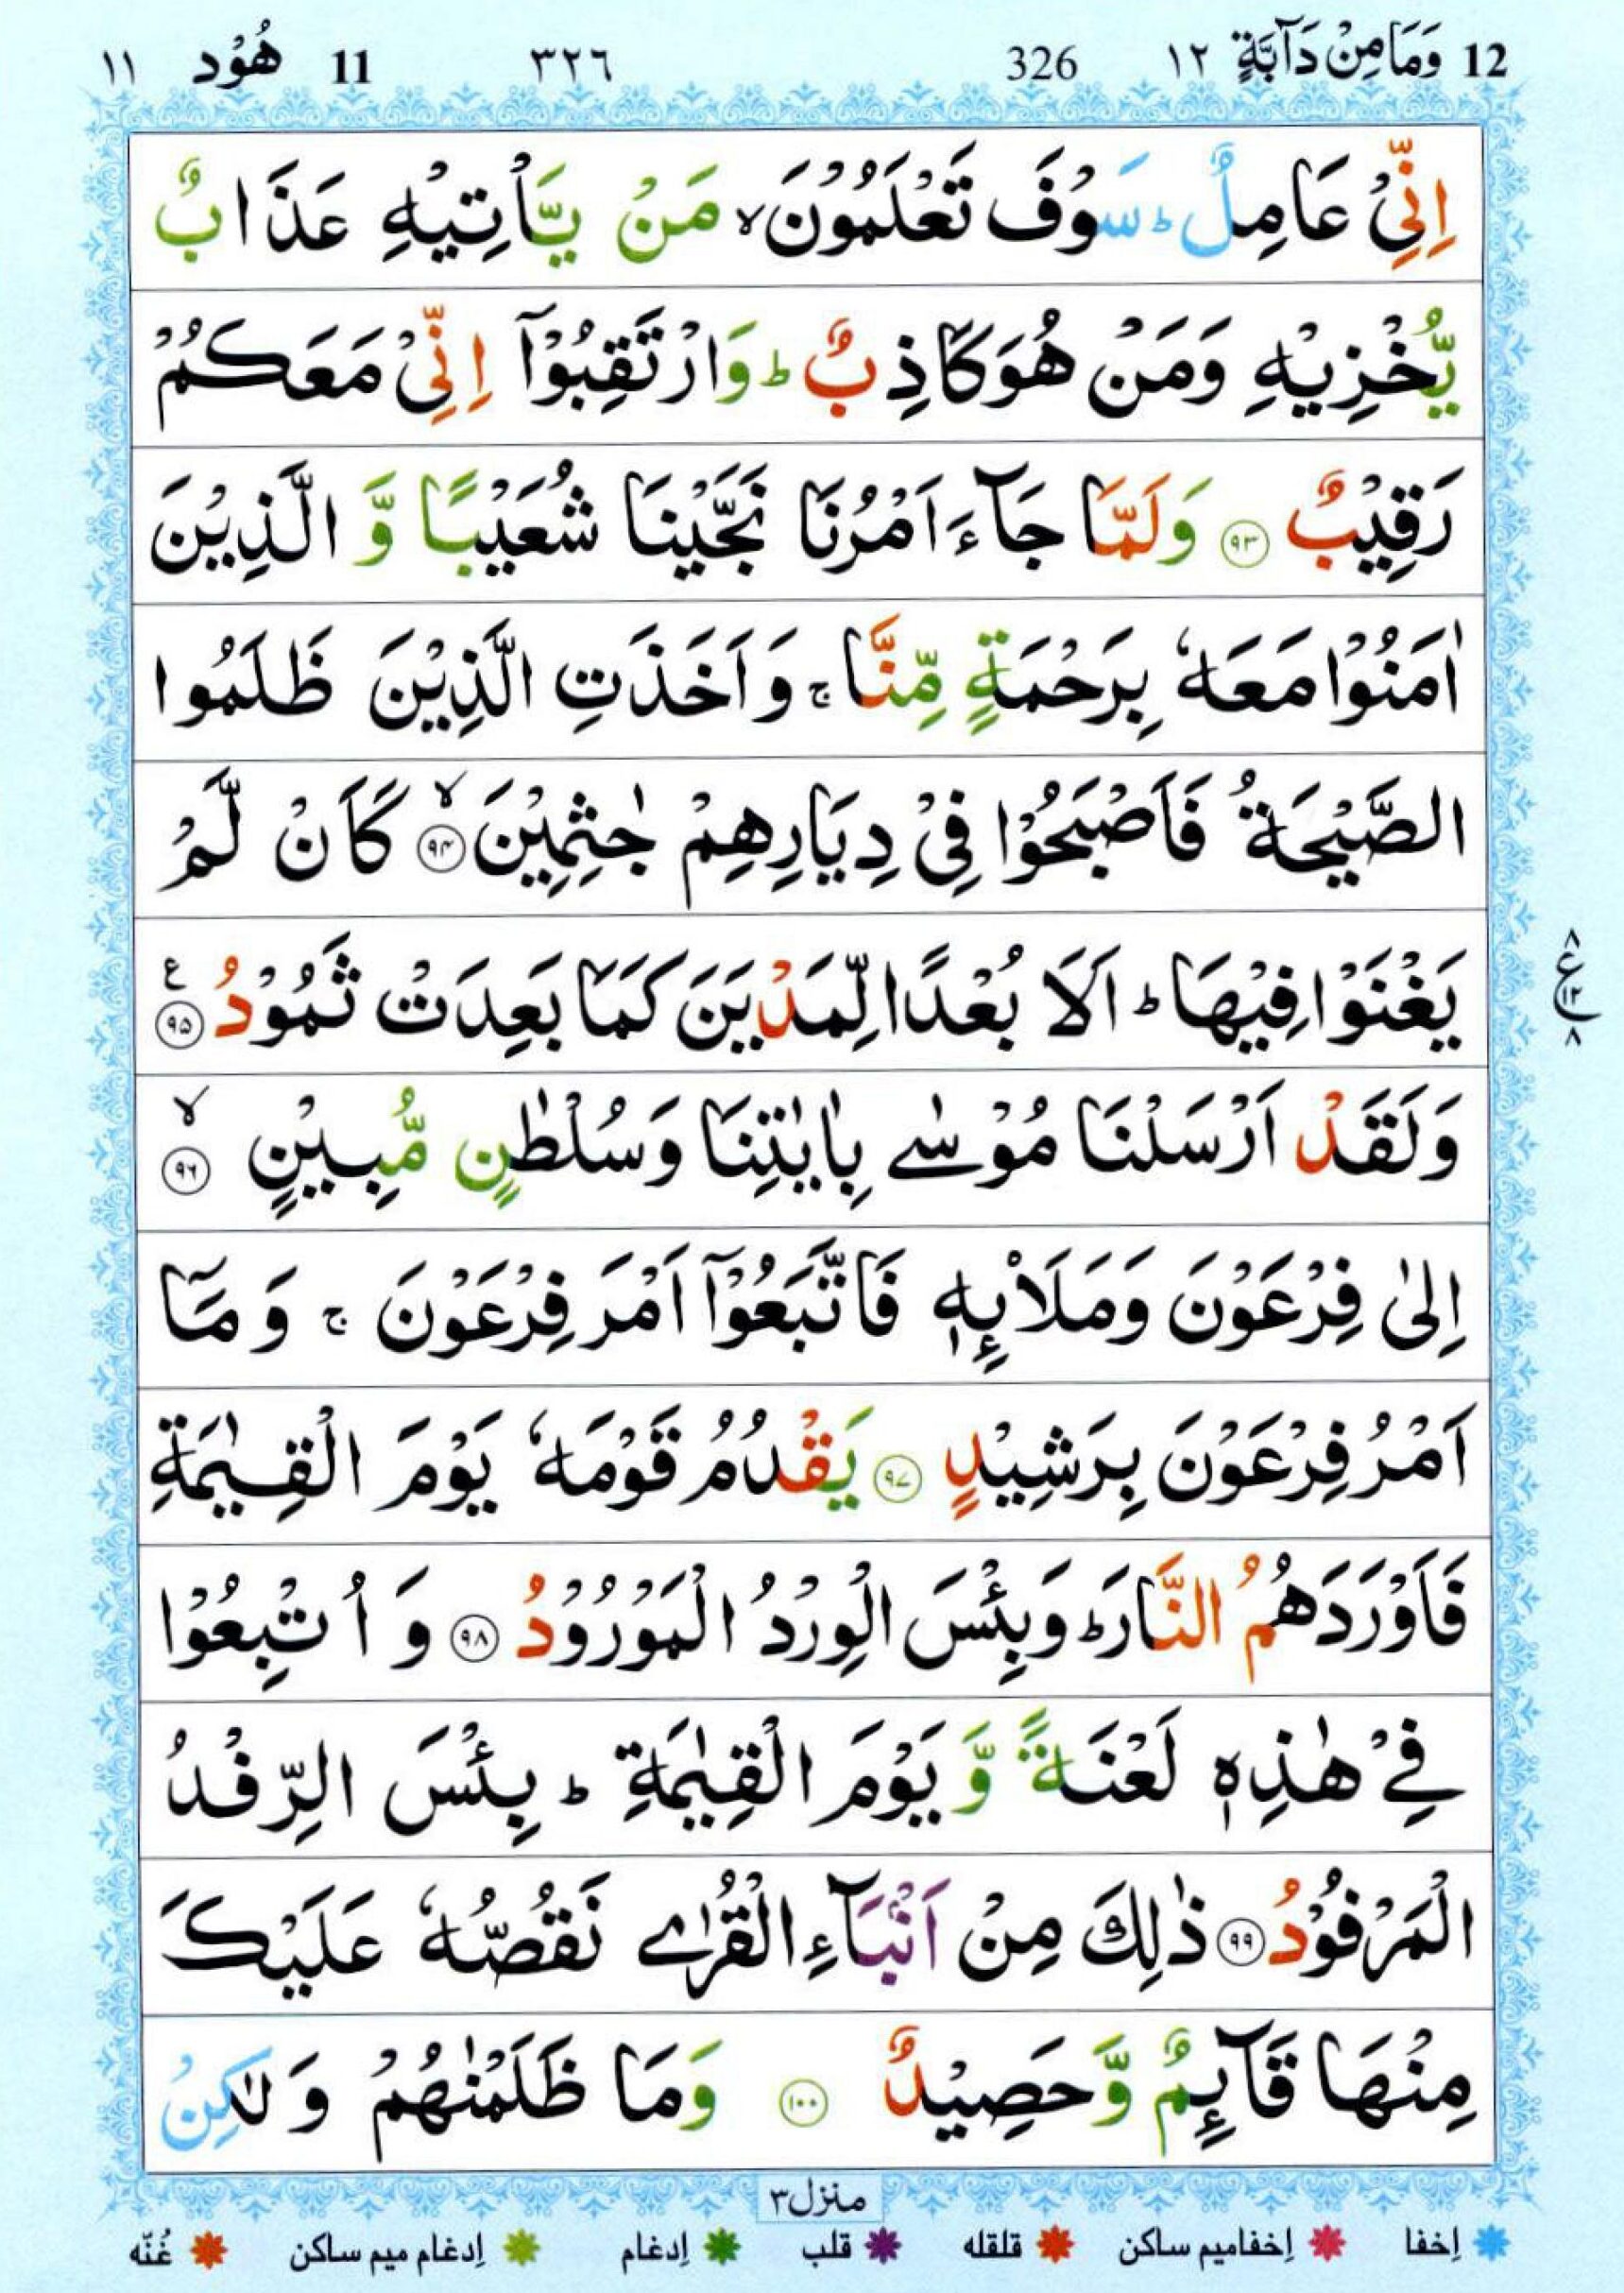 12 وَمَا مِنْ دَآبَّةٍ ١٢ 326 ٣٢٦ 11 هُوْد ١١
اِنِّیْ عَامِلٌ ؕ سَوْفَ تَعْلَمُوْنَ ۙ مَنْ یَّاْتِیْهِ عَذَابٌ
یُّخْزِیْهِ وَمَنْ هُوَ كَاذِبٌ ؕ وَارْتَقِبُوْۤا اِنِّیْ مَعَكُمْ
رَقِیْبٌ ﴿۹۳﴾ وَلَمَّا جَآءَ اَمْرُنَا نَجَّیْنَا شُعَیْبًا وَّ الَّذِیْنَ
اٰمَنُوْا مَعَهٗ بِرَحْمَةٍ مِّنَّا ۚ وَ اَخَذَتِ الَّذِیْنَ ظَلَمُوا
الصَّیْحَةُ فَاَصْبَحُوْا فِیْ دِیَارِهِمْ جٰثِمِیْنَ ﴿۹۴﴾ ۙ كَاَنْ لَّمْ
یَغْنَوْا فِیْهَا ؕ اَلَا بُعْدًا لِّمَدْیَنَ كَمَا بَعِدَتْ ثَمُوْدُ ﴿۹۵﴾ ع
٨ ع ١٢ ٨
وَلَقَدْ اَرْسَلْنَا مُوْسٰی بِاٰیٰتِنَا وَسُلْطٰنٍ مُّبِیْنٍ ﴿۹۶﴾ ۙ
اِلٰی فِرْعَوْنَ وَمَلَاۡئِهٖ فَاتَّبَعُوْۤا اَمْرَ فِرْعَوْنَ ۚ وَ مَاۤ
اَمْرُ فِرْعَوْنَ بِرَشِیْدٍ ﴿۹۷﴾ یَقْدُمُ قَوْمَهٗ یَوْمَ الْقِیٰمَةِ
فَاَوْرَدَهُمُ النَّارَ ؕ وَبِئْسَ الْوِرْدُ الْمَوْرُوْدُ ﴿۹۸﴾ وَ اُتْبِعُوْا
فِیْ هٰذِهٖ لَعْنَةً وَّ یَوْمَ الْقِیٰمَةِ ؕ بِئْسَ الرِّفْدُ
الْمَرْفُوْدُ ﴿۹۹﴾ ذٰلِكَ مِنْ اَنْۢبَآءِ الْقُرٰی نَقُصُّهٗ عَلَیْكَ
مِنْهَا قَآئِمٌ وَّ حَصِیْدٌ ﴿۱۰۰﴾ وَمَا ظَلَمْنٰهُمْ وَ لٰكِنْ
منزل٣
اِخفا اِخفامیم ساکن قلقله قلب اِدغام اِدغام میم ساکن غُنّه